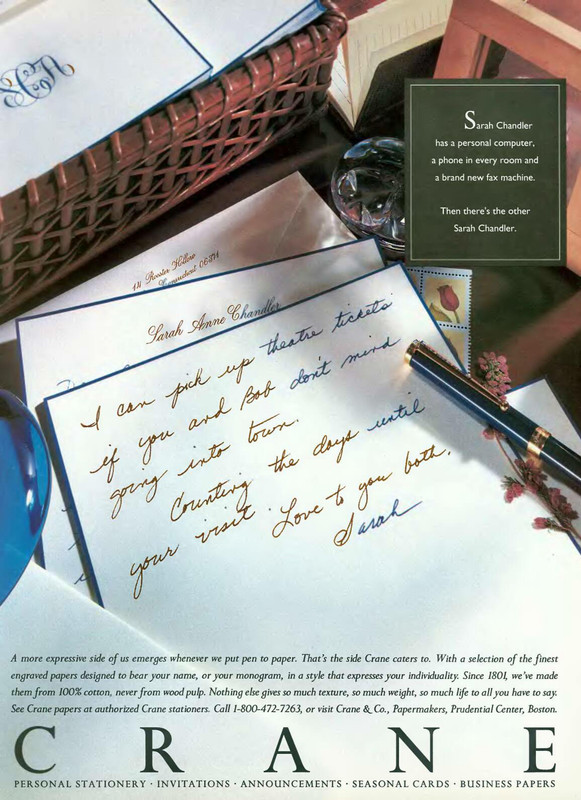 Sarah Chandler
has a personal computer,
a phone in every room and
a brand new fax machine.
Then there's the other
Sarah Chandler.
06371
Sarah Anne Chandler
I can pick up theatre tickets
if you and Bob don't mind
going into town.
Counting the days until
your visit. Love to you both,
Sarah
A more expressive side of us emerges whenever we put pen to paper. That's the side Crane caters to. With a selection of the finest
engraved papers designed to bear your name, or your monogram, in a style that expresses your individuality. Since 1801, we've made
them from 100% cotton, never from wood pulp. Nothing else gives so much texture, so much weight, so much life to all you have to say.
See Crane papers at authorized Crane stationers. Call 1-800-472-7263, or visit Crane & Co., Papermakers, Prudential Center, Boston.
CRANE
PERSONAL STATIONERY · INVITATIONS · ANNOUNCEMENTS · SEASONAL CARDS · BUSINESS PAPERS